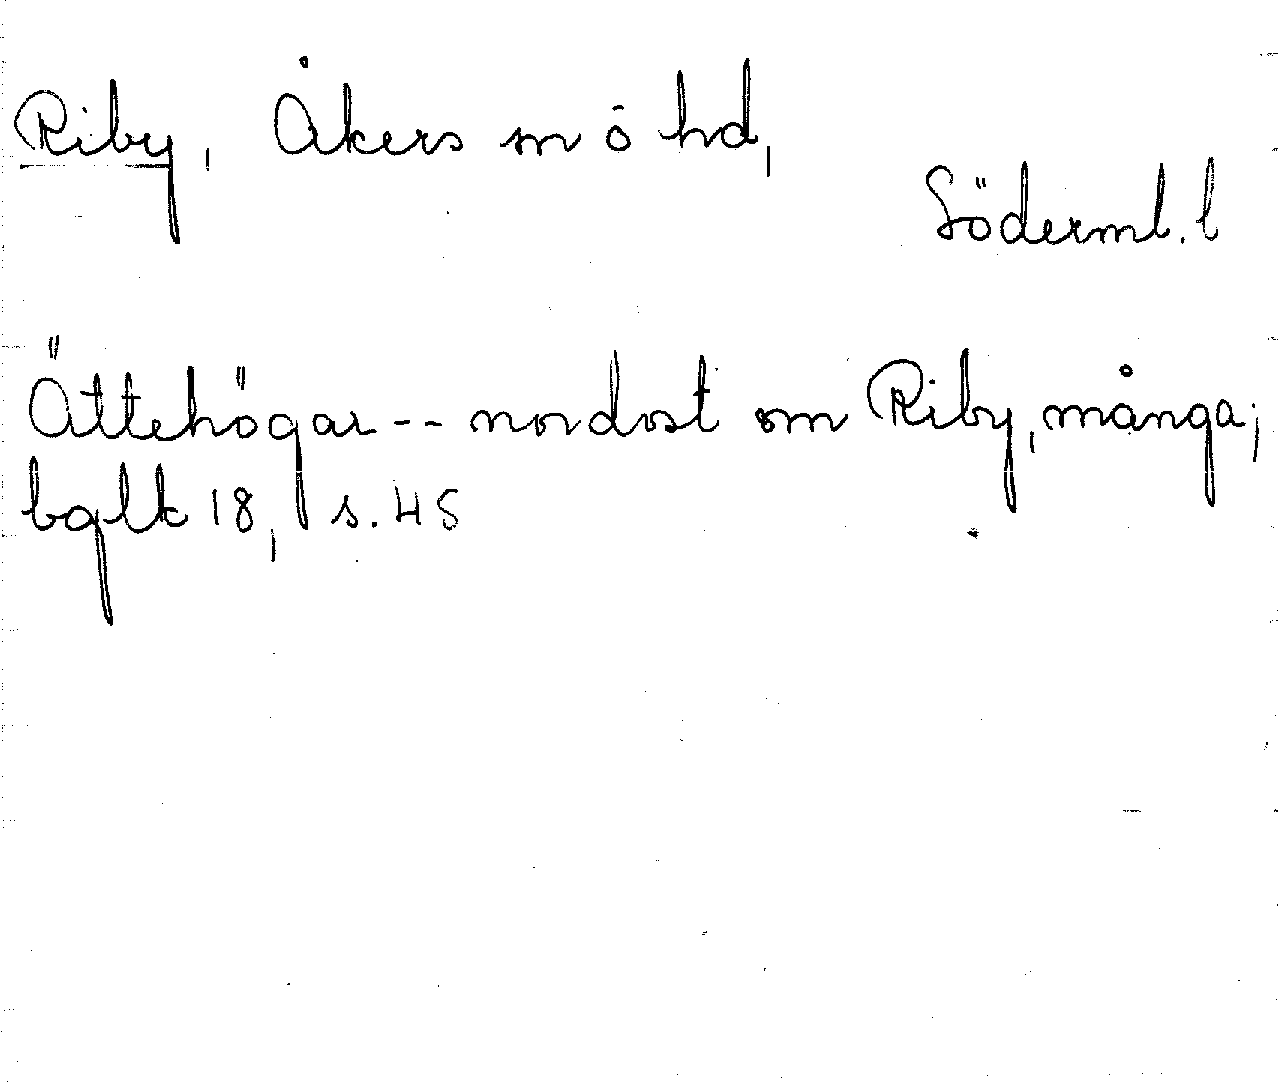 Riby, Åkers sn ö hd,
Söderml. l
Ättehögar -- nordost om Riby, många;
bglk 18, s. 45